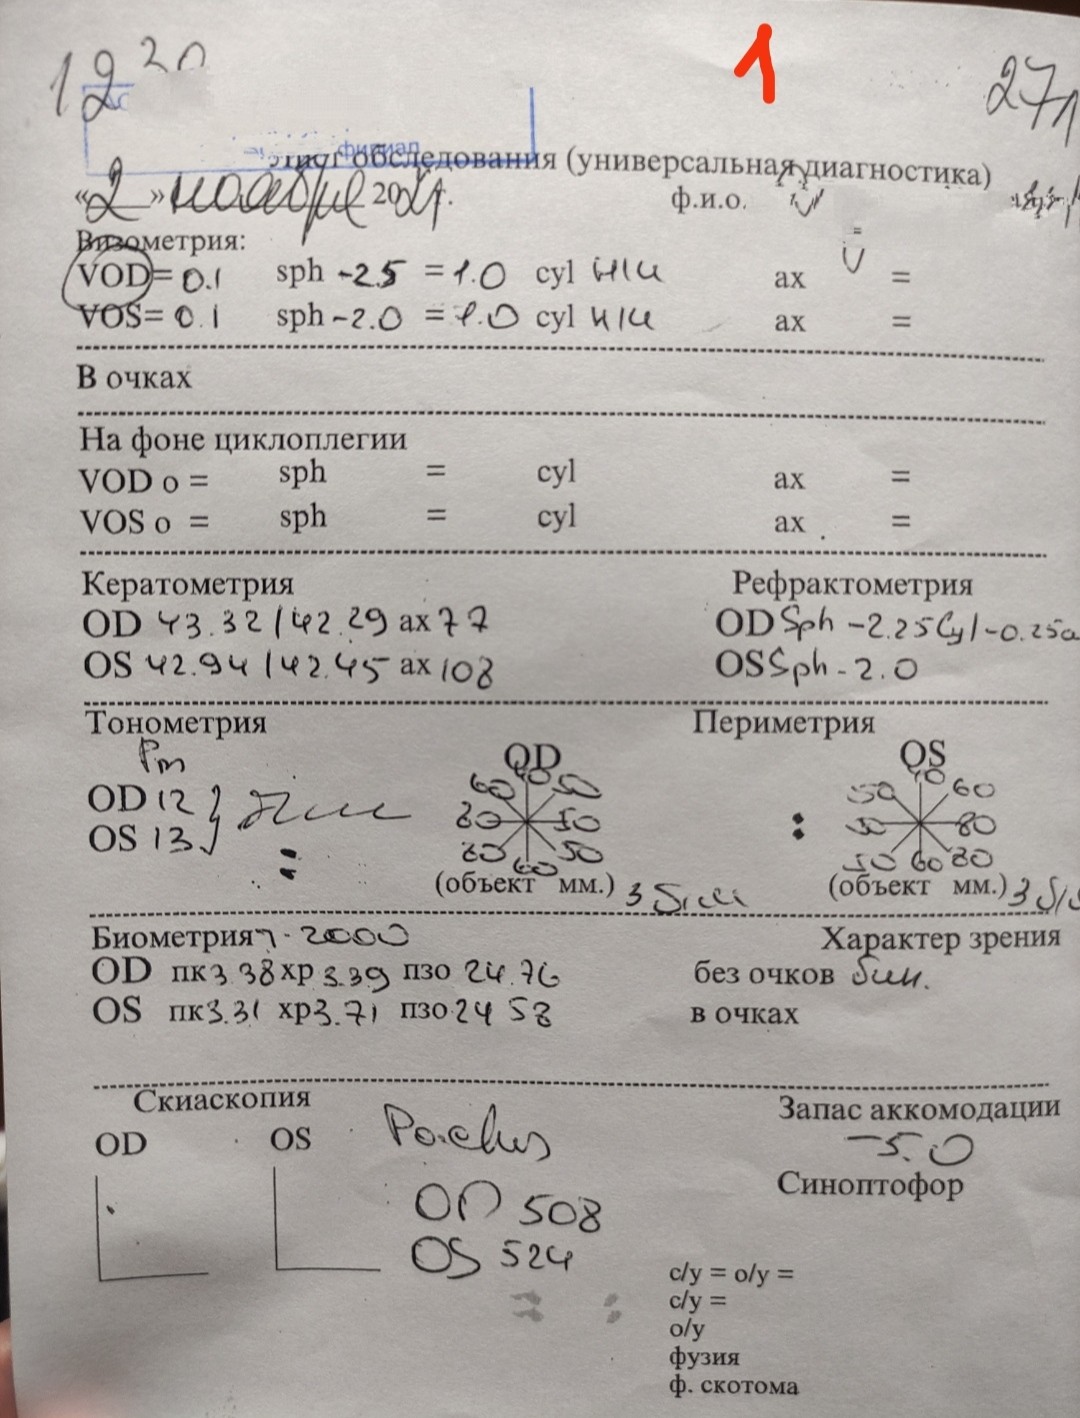 12 20
1
271
филиал
обследования (универсальная диагностика)
«2» ноября 2021г. ф.и.о.
Визометрия:
VOD= 0.1 sph -2.5 = 1.0 cyl н/к ax =
VOS= 0.1 sph -2.0 = 1.0 cyl н/к ax =
В очках
На фоне циклоплегии
VOD o = sph = cyl ax =
VOS o = sph = cyl ax =
Кератометрия Рефрактометрия
OD 43.32/42.29 ax 77 OD Sph -2.25 Cyl -0.25a
OS 42.94/42.45 ax 108 OS Sph - 2.0
Тонометрия Периметрия
Pm OD OS
OD 12
OS 13
60 50 50 60
80 50 50 80
80 60 50 50 60 80
(объект мм.) 3 (объект мм.) 3
Биометрия - 2000 Характер зрения
OD пк 3.38 хр 3.39 пзо 24.76 без очков бин.
OS пк 3.31 хр 3.71 пзо 24 58 в очках
Скиаскопия Запас аккомодации
OD OS Pachus -5.0
Синоптофор
OD 508
OS 524
с/у = о/у =
с/у =
о/у
фузия
ф. скотома